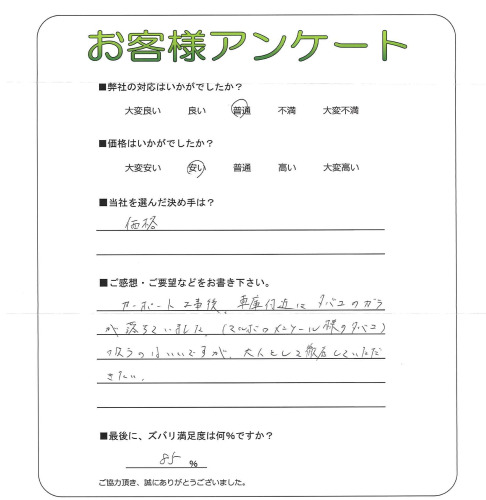 お客様アンケート
■弊社の対応はいかがでしたか？
大変良い 良い 普通 不満 大変不満
■価格はいかがでしたか？
大変安い 安い 普通 高い 大変高い
■当社を選んだ決め手は？
価格
■ご感想・ご要望などをお書き下さい。
カーポート工事後、車庫付近にタバコのガラ
が落ちていました。(マルボロメンソール様のタバコ)
吸うのはいいですが、大人として徹底していただ
きたい。
■最後に、ズバリ満足度は何%ですか？
85 %
ご協力頂き、誠にありがとうございました。